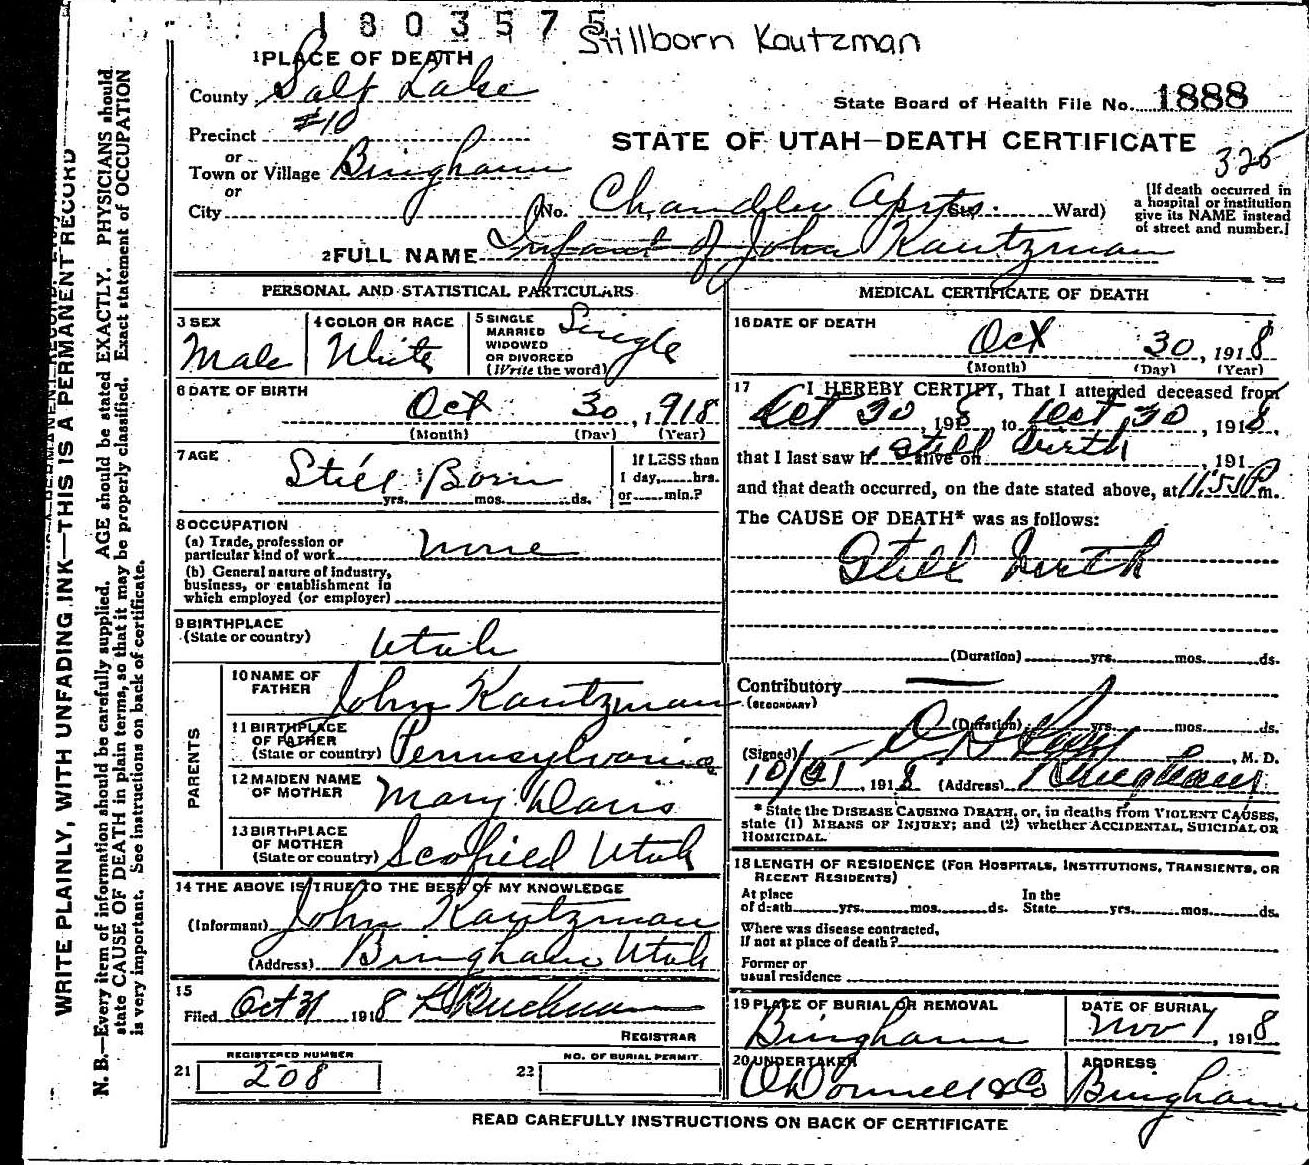 1803575
Stillborn Kautzman
1 PLACE OF DEATH
County Salt Lake
State Board of Health File No. 1888
Precinct #10
STATE OF UTAH—DEATH CERTIFICATE
325
or
Town or Village Bingham
or
City (No. Chandler Apts St. Ward)
[If death occurred in
a hospital or institution
give its NAME instead
of street and number.]
2 FULL NAME Infant of John Kautzman
PERSONAL AND STATISTICAL PARTICULARS
3 SEX
Male
4 COLOR OR RACE
White
5 SINGLE
MARRIED
WIDOWED
OR DIVORCED
(Write the word)
Single
6 DATE OF BIRTH
Oct 30, 1918
(Month) (Day) (Year)
7 AGE
Still Born
yrs. mos. ds.
If LESS than
1 day, hrs.
or min.?
8 OCCUPATION
(a) Trade, profession or
particular kind of work none
(b) General nature of industry,
business, or establishment in
which employed (or employer)
9 BIRTHPLACE
(State or country)
Utah
PARENTS
10 NAME OF
FATHER
John Kautzman
11 BIRTHPLACE
OF FATHER
(State or country) Pennsylvania
12 MAIDEN NAME
OF MOTHER
Mary Davis
13 BIRTHPLACE
OF MOTHER
(State or country) Scofield Utah
14 THE ABOVE IS TRUE TO THE BEST OF MY KNOWLEDGE
(Informant) John Kautzman
(Address) Bingham Utah
15
Filed Oct 31 1918
REGISTRAR
REGISTERED NUMBER
21 208
NO. OF BURIAL PERMIT.
22
MEDICAL CERTIFICATE OF DEATH
16 DATE OF DEATH
Oct 30, 1918
(Month) (Day) (Year)
17 I HEREBY CERTIFY, That I attended deceased from
Oct 30, 1918, to Oct 30, 1918,
that I last saw h alive on still birth, 191
and that death occurred, on the date stated above, at 11:55 P m.
The CAUSE OF DEATH* was as follows:
Still birth
(Duration) yrs. mos. ds.
Contributory —
(SECONDARY)
(Duration) yrs. mos. ds.
(Signed) , M. D.
10/31, 1918 (Address) Bingham
* State the DISEASE CAUSING DEATH, or, in deaths from VIOLENT CAUSES,
state (1) MEANS OF INJURY; and (2) whether ACCIDENTAL, SUICIDAL OR
HOMICIDAL.
18 LENGTH OF RESIDENCE (FOR HOSPITALS, INSTITUTIONS, TRANSIENTS, OR
RECENT RESIDENTS)
At place
of death yrs. mos. ds.
In the
State yrs. mos. ds.
Where was disease contracted,
If not at place of death?
Former or
usual residence
19 PLACE OF BURIAL OR REMOVAL
Bingham
DATE OF BURIAL
Nov 1, 1918
20 UNDERTAKER
O'Donnell & Co
ADDRESS
Bingham
READ CAREFULLY INSTRUCTIONS ON BACK OF CERTIFICATE
WRITE PLAINLY, WITH UNFADING INK—THIS IS A PERMANENT RECORD
N. B.—Every item of information should be carefully supplied. AGE should be stated EXACTLY. PHYSICIANS should
state CAUSE OF DEATH in plain terms, so that it may be properly classified. Exact statement of OCCUPATION
is very important. See instructions on back of certificate.